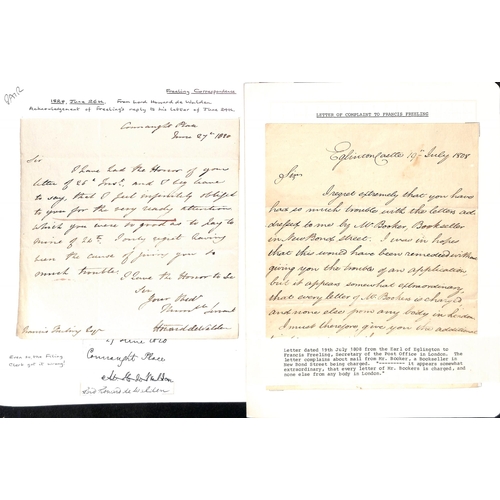 PAIR
Freeling Correspondence
1820, June 28th. From Lord Howard de Walden
Acknowledgement of Freeling's reply to his letter of June 24th.
Connaught Place
June 27th 1820
Sir
I have had the Honor of your
letter of 26th Inst, and I beg leave
to say, that I feel infinitely obliged
to you for the very ready attention
which you were so good as to pay to
mine of 24th. I only regret having
been the cause of giving you so
much trouble.
I have the Honor to be
Sir
Your Obedt
Servant
Howard de Walden
Francis Freeling Esqr
June 1820
Connaught Place
Howard de Walden
Lord Howard de Walden
Even to the Filing
Clerk got it wrong!
LETTER OF COMPLAINT TO FRANCIS FREELING
Eglinton Castle 19th July 1808
Sir
I regret extremely that you have
had so much trouble with the letters ad
dressed to me by Mr Booker, Bookseller
in New Bond street. I was in hopes
that this would have been remedied without
giving you the trouble of an application,
but it appears somewhat extraordinary
that every letter of Mr Bookers is charged
and none else from any body in London.
I must therefore give you the additional
Letter dated 19th July 1808 from the Earl of Eglington to
Francis Freeling, Secretary of the Post Office in London. The
letter complains about mail from Mr. Booker, a Bookseller in
New Bond Street being charged. "--------- it appears somewhat
extraordinary, that every letter of Mr. Bookers is charged, and
none else from any body in London."